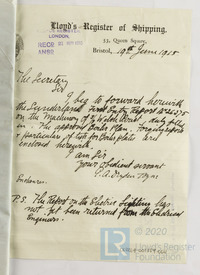 Lloyd's Register of Shipping.
LONDON.
33, Queen Square,
Bristol, 19th June 1915
The Secretary
Sir
I beg to forward herewith
the Sunderland First Entry Report
on the Machinery of duly filled
in. The approved Boiler Plan,
particulars of for Boiler plates are
enclosed herewith.
I am Sir
Your obedient servant
Enclosures.
P.S. The Report on the Electric Lighting has
not yet been returned from the Electrical
Engineers.
© 2020
Lloyd's Register
Foundation